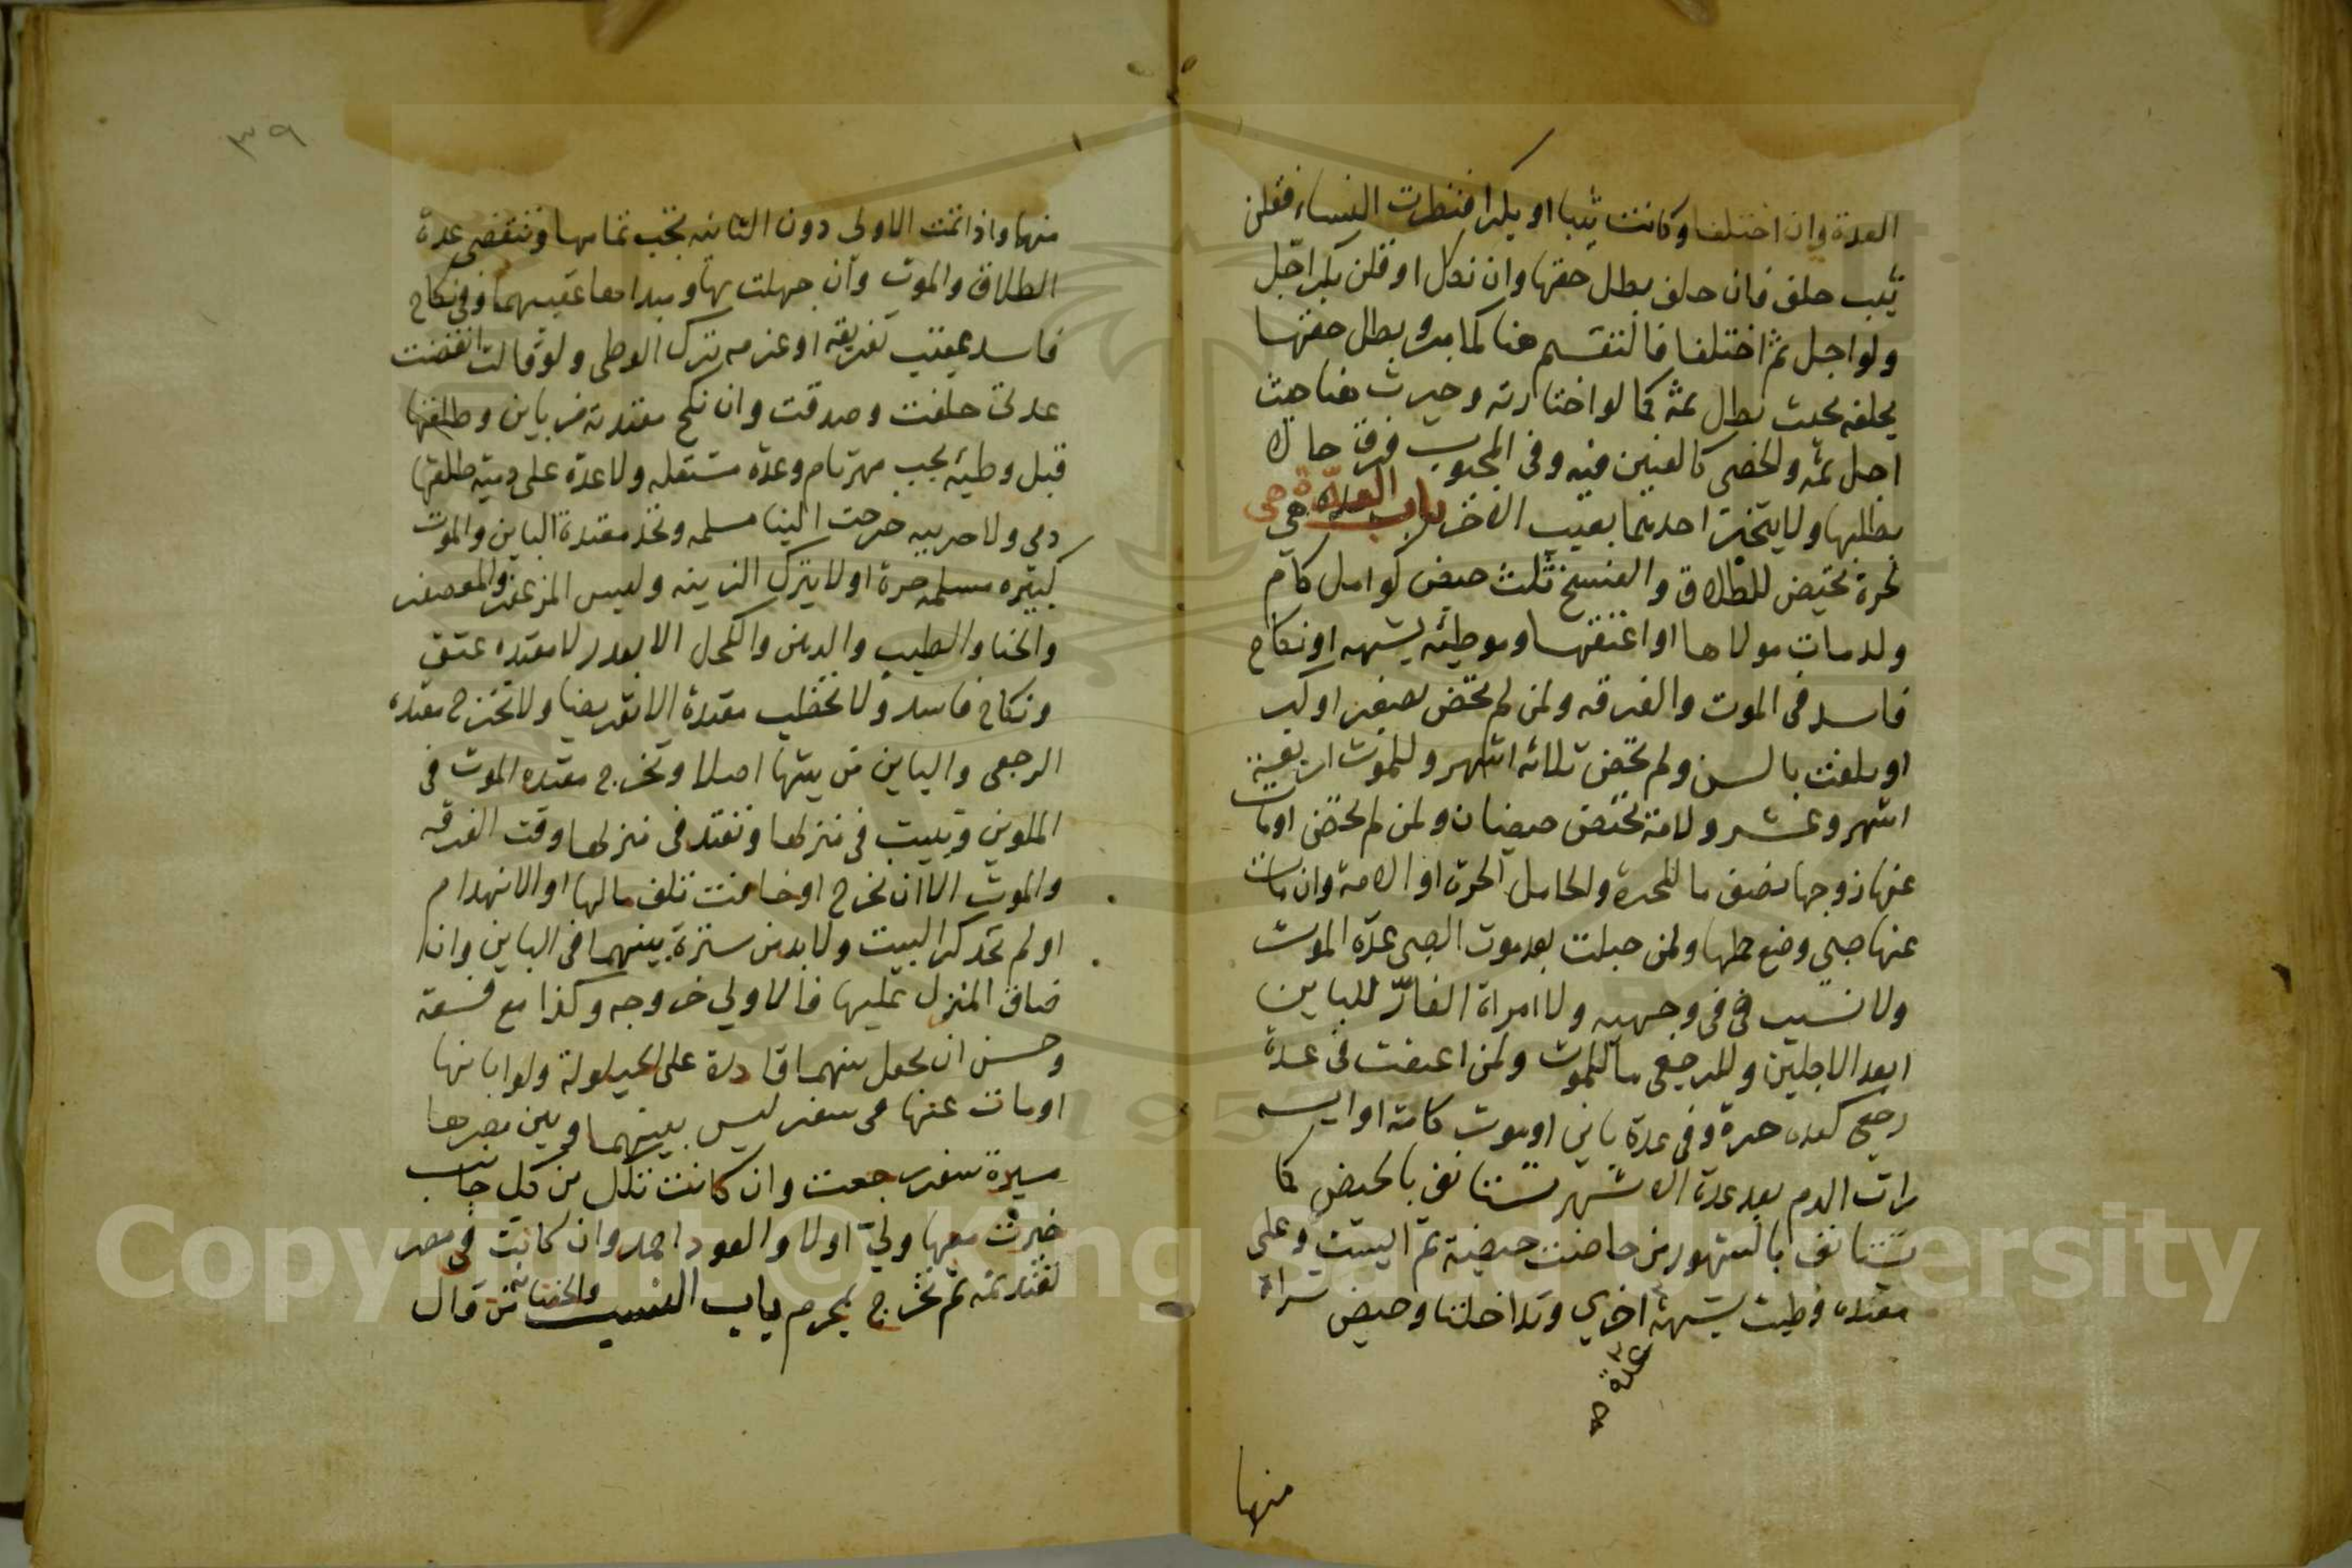 العدة وان اختلفا وكانت ثيبا او بكرا فنظرت النساء فقلن
ثيب حلف فان حلف بطل حقها وان نكل او قلن بكرا جل
ولو اجل ثم اختلفا فالتقسيم هنا كما مر وبطل حقها
بحلفه بحيث بطل ثمه كما لو اختارته وخيرت هنا حيث
اجل ثمه والخصي كالعنين فيه وفي المجبوب فرق حالا
بطلبها ولا يتخير احدهما بعيب الاخر باب العدة هي
لحرة تحيض للطلاق والفسخ ثلث حيض كوامل كام
ولد مات مولاها او اعتقها وموطئه بشبهه او نكاح
فاسد في الموت والفرقه ولمن لم تحض لصغر او كبر
او بلغت بالسن ولم تحض ثلاثه اشهر وللموت اربعة
اشهر وعشر ولامة تحيض حيضتان ولمن لم تحض او مات
عنها زوجها نصف ما للحرة ولحامل الحرة او الامة وان مات
عنها صبي وضع حملها ولمن حبلت بعد موت الصبي عدة الموت
ولا نسب في في وجهيه ولا امراة الفار للباين
ابعد الاجلين وللرجعي ما للموت ولمن اعتقت في عدة
رجعي كعده حرة وفي عدة باين او موت كامة او ايسه
رات الدم بعد عدة الاشهر تستانف بالحيض كما
تستانف بالشهور من حاضت حيضة ثم ايست وعلى
معتده وطيت بشبهة اخري وتداخلتا وحيض تراه
عدة صح
منها
٣٩
منها واذا تمت الاولى دون الثانيه تجب تمامها وتنقضي عدة
الطلاق والموت وان جهلت بها ومبداهما عقيبهما وفي نكاح
فاسد عقيب تفريقه او عزمه ترك الوطى ولو قالت انقضت
عدتى حلفت وصدقت وان نكح معتدته من باين وطلقها
قبل وطيه يجب مهر تام وعدة مستقله ولا عدة على ذميه طلقها
ذمي ولا حربيه خرجت الينا مسلمه وتحد معتدة الباين والموت
كبيره مسلمه حرة او لا بترك الزينه ولبس المزعفر والمعصفر
والحنا والطيب والدهن والكحل الا بعذر لا معتده عتق
ونكاح فاسد ولا تخطب معتدة الا تعريضا ولا تخرج معتده
الرجعي والباين من بيتها اصلا وتخرج معتده الموت في
الملوين وتبيت في منزلها وتعتد في منزلها وقت الفرقه
والموت الا ان تخرج او خافت تلف مالها او الانهدام
او لم تجد كرا البيت ولا بد من سترة بينهما في الباين وان
ضاق المنزل عليها فالاولي خروجه وكذا مع فسقه
وحسن ان يجعل بينهما قادرة على الحيلولة ولو ابانها
او مات عنها في سفر ليس بينهما وبين مصرها
مسيرة سفر رجعت وان كانت تلك من كل جانب
خيرت معها ولي او لا والعود احمد وان كانت في مصر
تعتد ثمه ثم تخرج بمحرم باب النسب والحضانة من قال